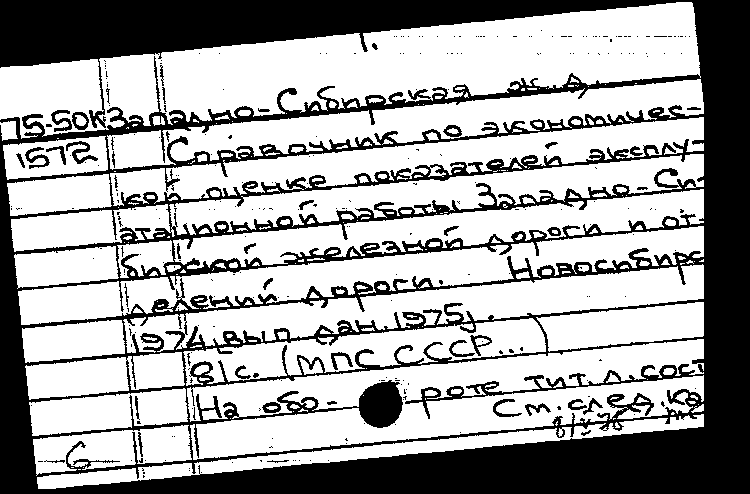 1.
75-50К Западно-Сибирская ж.д.
1572 Справочник по экономичес-
кой оценке показателей эксплу-
атационной работы Западно-Си-
бирской железной дороги и от-
делений дороги. Новосибирс
1974, [вып. дан. 1975].
81с. (МПС СССР...)
На обо- роте тит. л. сост
См. след. ка
6